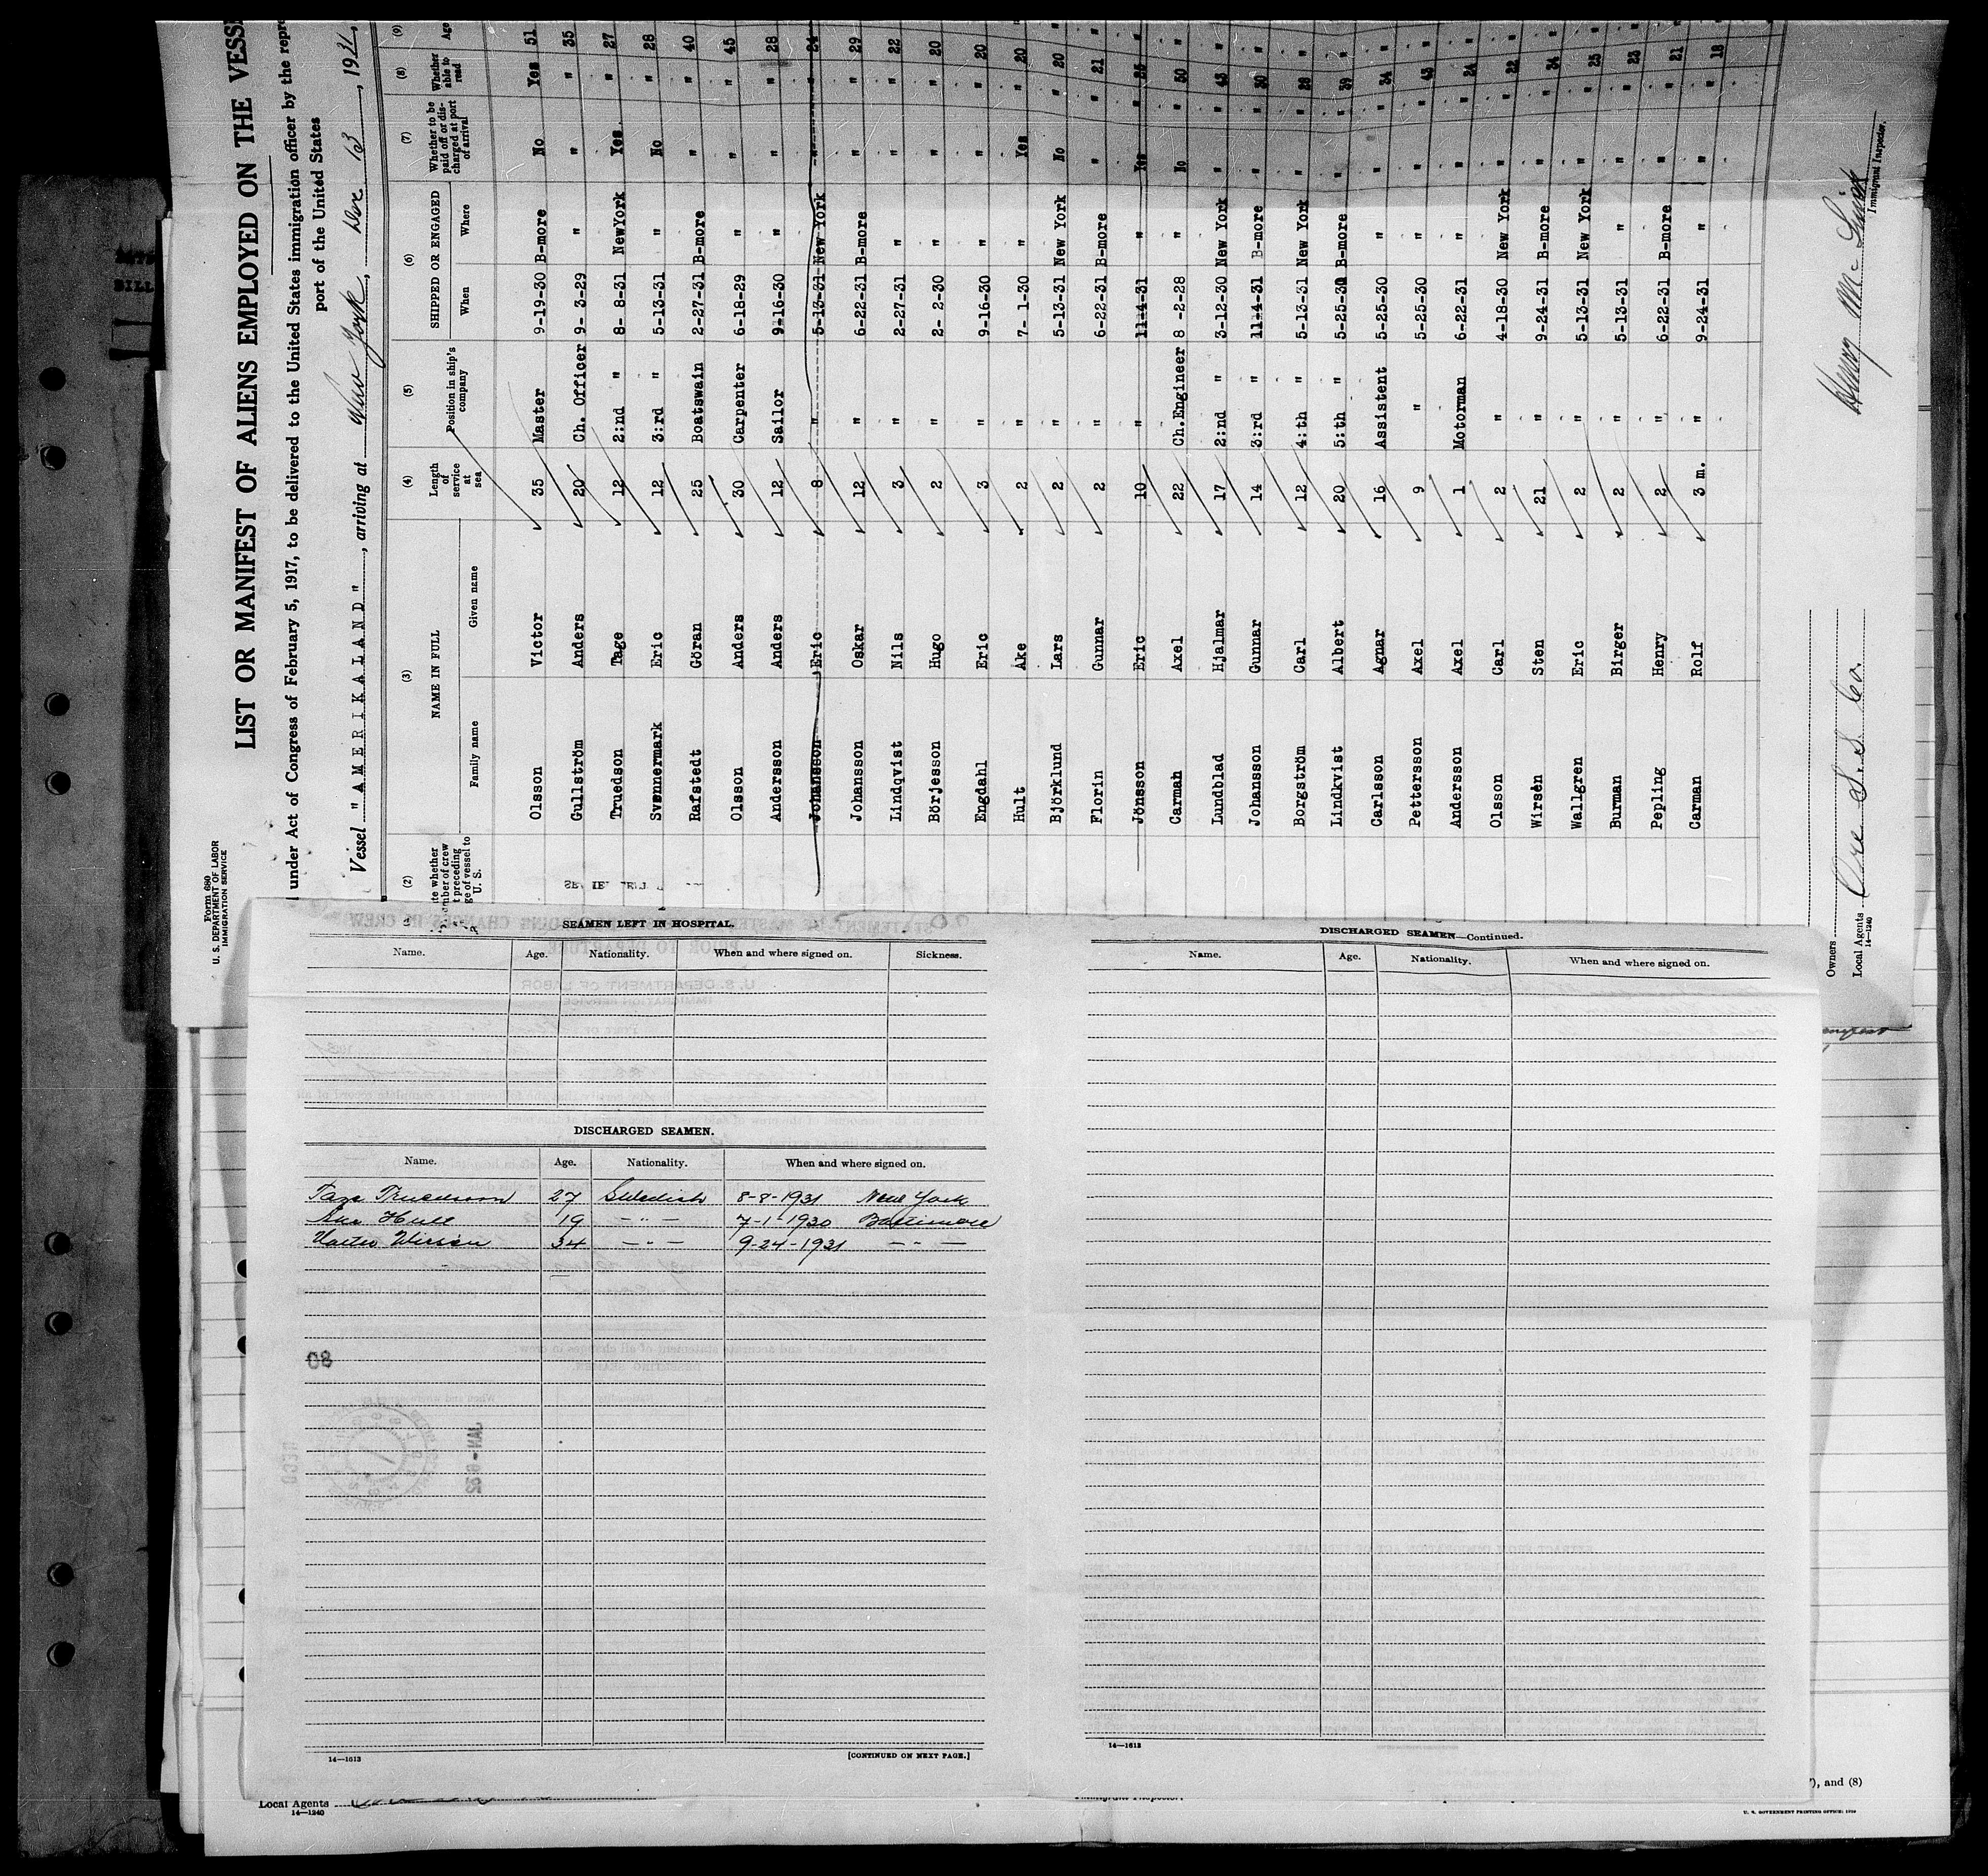 Form 680
U. S. DEPARTMENT OF LABOR
IMMIGRATION SERVICE
LIST OR MANIFEST OF ALIENS EMPLOYED ON THE VESSE
under Act of Congress of February 5, 1917, to be delivered to the United States immigration officer by the repr
port of the United States
Vessel "AMERIKALAND", arriving at New York, Dec 13, 1931,
(2) (3) (4) (5) (6) (7) (8) (9)
NAME IN FULL Length of service at sea Position in ship's company SHIPPED OR ENGAGED Whether to be paid off or discharged at port of arrival Whether able to read Ag
Family name Given name When Where
Olsson Victor 35 Master 9-19-30 B-more No Yes 51
Gullström Anders 20 Ch. Officer 9- 3-29 " " " 35
Truedson Tage 12 2:nd " 8- 8-31 NewYork Yes " 27
Svennermark Eric 12 3:rd " 5-13-31 " No " 28
Rafstedt Göran 25 Boatswain 2-27-31 B-more " " 40
Olsson Anders 30 Carpenter 6-18-29 " " " 45
Andersson Anders 12 Sailor 9-16-30 " " " 28
Johansson Eric 8 " 5-13-31 New York " " 24
Johansson Oskar 12 " 6-22-31 B-more " " 29
Lindqvist Nils 3 " 2-27-31 " " " 22
Börjesson Hugo 2 " 2- 2-30 " " " 20
Engdahl Eric 3 " 9-16-30 " " " 20
Hult Åke 2 " 7- 1-30 " Yes " 20
Björklund Lars 2 " 5-13-31 New York No " 20
Florin Gunnar 2 " 6-22-31 B-more " " 21
Jönsson Eric 10 " 11-4-31 " Yes " 25
Carmah Axel 22 Ch.Engineer 8 -2-28 " No " 50
Lundblad Hjalmar 17 2:nd " 3-12-30 New York " " 43
Johansson Gunnar 14 3:rd " 11-4-31 B-more " " 30
Borgström Carl 12 4:th " 5-13-31 New York " " 28
Lindkvist Albert 20 5:th " 5-25-30 B-more " " 39
Carlsson Agnar 16 Assistent 5-25-30 " " " 34
Pettersson Axel 9 " 5-25-30 " " " 43
Andersson Axel 1 Motorman 6-22-31 " " " 24
Olsson Carl 2 " 4-18-30 New York " " 22
Wirsén Sten 21 " 9-24-31 B-more " " 34
Wallgren Eric 2 " 5-13-31 New York " " 25
Burman Birger 2 " 5-13-31 " " " 23
Pepling Henry 2 " 6-22-31 B-more " " 21
Carman Rolf 3 m. " 9-24-31 " " " 18
Owners
Local Agents Ore S.S. Co.
14—1240
Immigrant Inspector.
SEAMEN LEFT IN HOSPITAL.
Name. Age. Nationality. When and where signed on. Sickness.
DISCHARGED SEAMEN.
Name. Age. Nationality. When and where signed on.
Tage Truedsson 27 Swedish 8-8-1931 New York
Åke Hult 19 — " — 7-1-1930 Baltimore
Wirsén 34 — " — 9-24-1931 — " —
80
14—1613
[CONTINUED ON NEXT PAGE.]
DISCHARGED SEAMEN—Continued.
Name. Age. Nationality. When and where signed on.
14—1613
Local Agents
14—1240
Immigrant Inspector.
), and (8)
U. S. GOVERNMENT PRINTING OFFICE: 1929